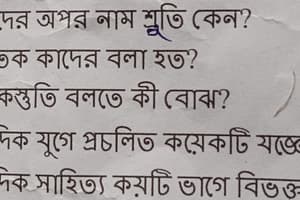 দের অপর নাম শ্রুতি কেন?
তক কাদের বলা হত?
কস্তুতি বলতে কী বোঝ?
দিক যুগে প্রচলিত কয়েকটি যজ্ঞে
দিক সাহিত্য কয়টি ভাগে বিভক্ত